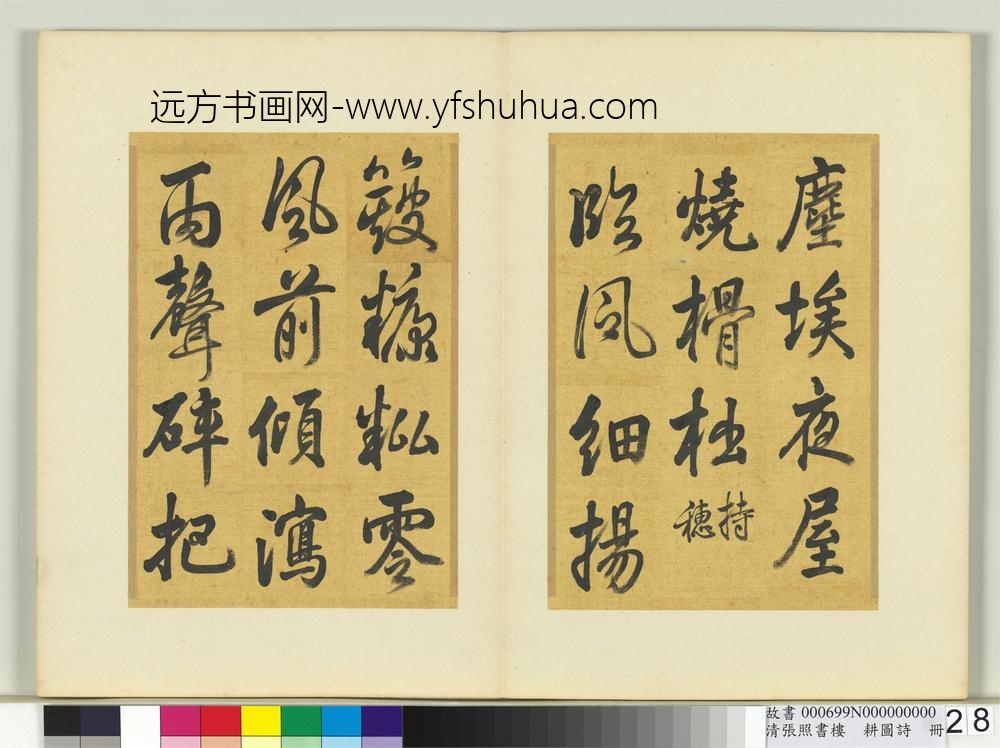 远方书画网-www.yfshuhua.com
塵埃夜屋
燒榾柮 持穗
臨風細揚
簸糠粃零
風前傾瀉
雨聲碎把
故書 000699N000000000
清張照書樓 耕圖詩 冊
28